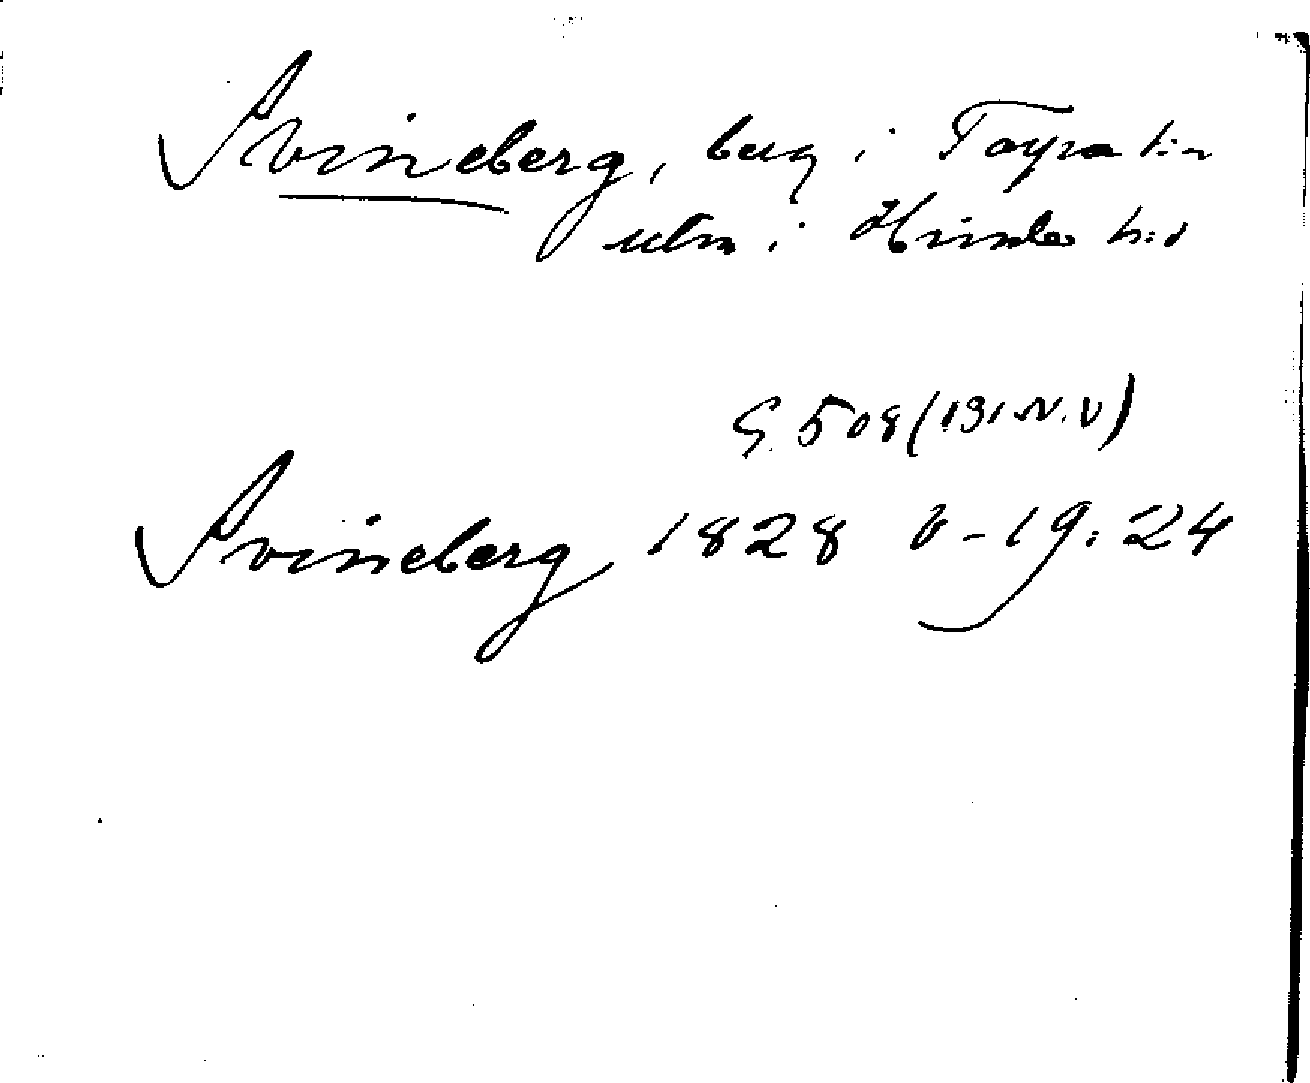 Svineberg, berg i Torpa sn
utm i Himle hd
G. 508 (131 N.V)
Svineberg 1828 V-19:24